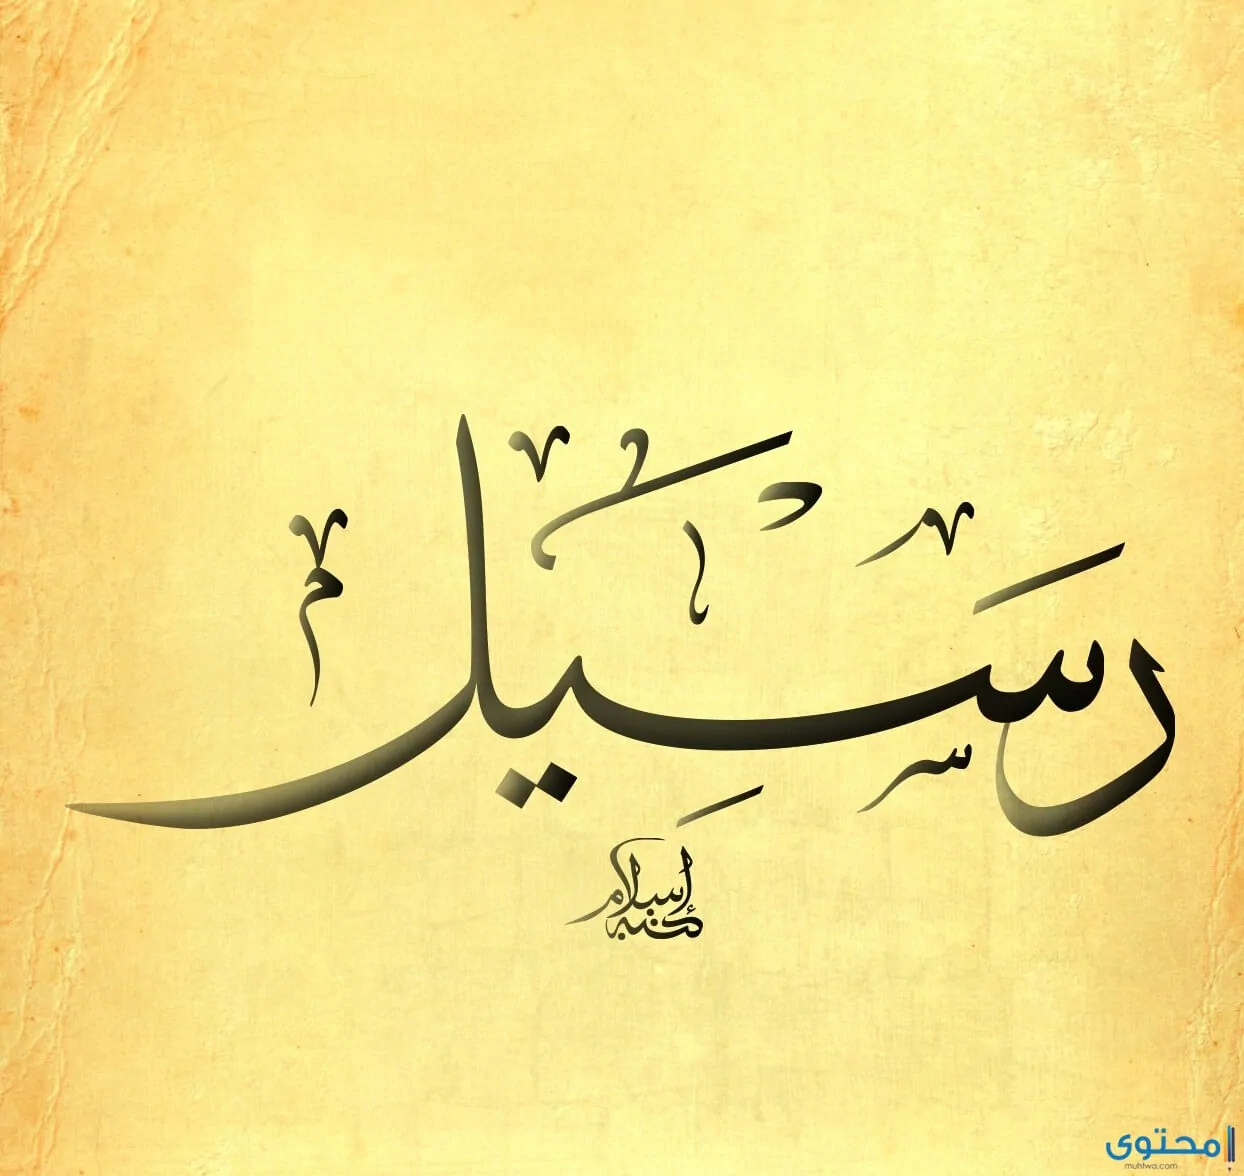 رَسِيل
كتبه إسلام
محتوى
muhtwa.com